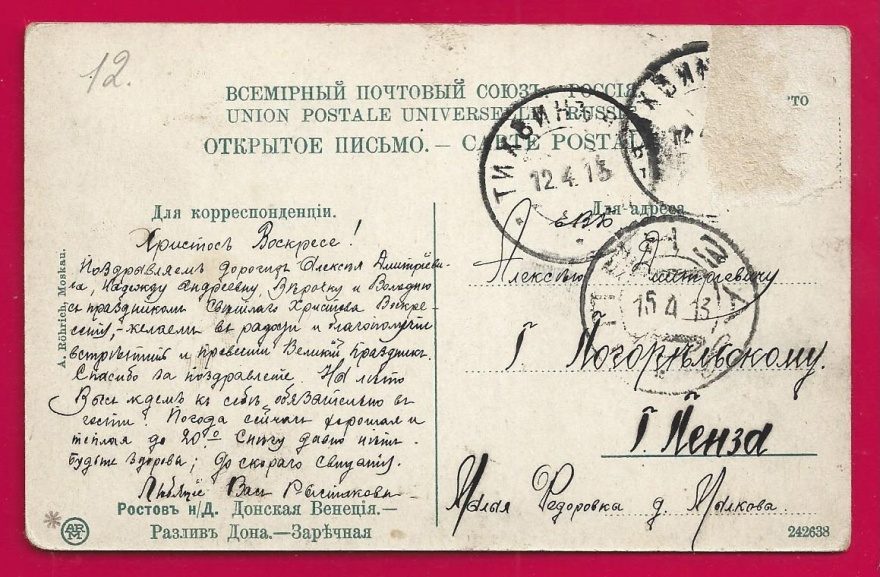 12.
ВСЕМІРНЫЙ ПОЧТОВЫЙ СОЮЗЪ. РОССІЯ
UNION POSTALE UNIVERSELLE. RUSSIE
ОТКРЫТОЕ ПИСЬМО. — CARTE POSTALE
ТИХВИНЪ
12.4.13
Для корреспонденціи.
Христосъ Воскресе!
Поздравляемъ дорогихъ Алексѣя Дмитріеви-
ча, Надежду Андреевну, Вѣрочку и Володю
съ праздникомъ Свѣтлаго Христова Воскре-
сенія, - желаемъ въ радости и благополучіи
встрѣтить и провести Великій праздникъ.
Спасибо за поздравленіе. На лѣто
Васъ ждемъ къ себѣ, обязательно въ
гости! Погода сейчасъ хорошая и
теплая до 20° Снѣгу давно нѣтъ.
Будьте здоровы; До скораго свиданія.
Любящіе Васъ
A. Röhrich, Moskau.
Для адреса
ЕВБ
Алексѣю Дмитріевичу
Г. Погорѣльскому.
Г. Пенза
Малая Федоровка д. Мылкова.
ПЕНЗА
15 4 13
Ростовъ н/Д. Донская Венеція.—
Разливъ Дона.—Зарѣчная
242638